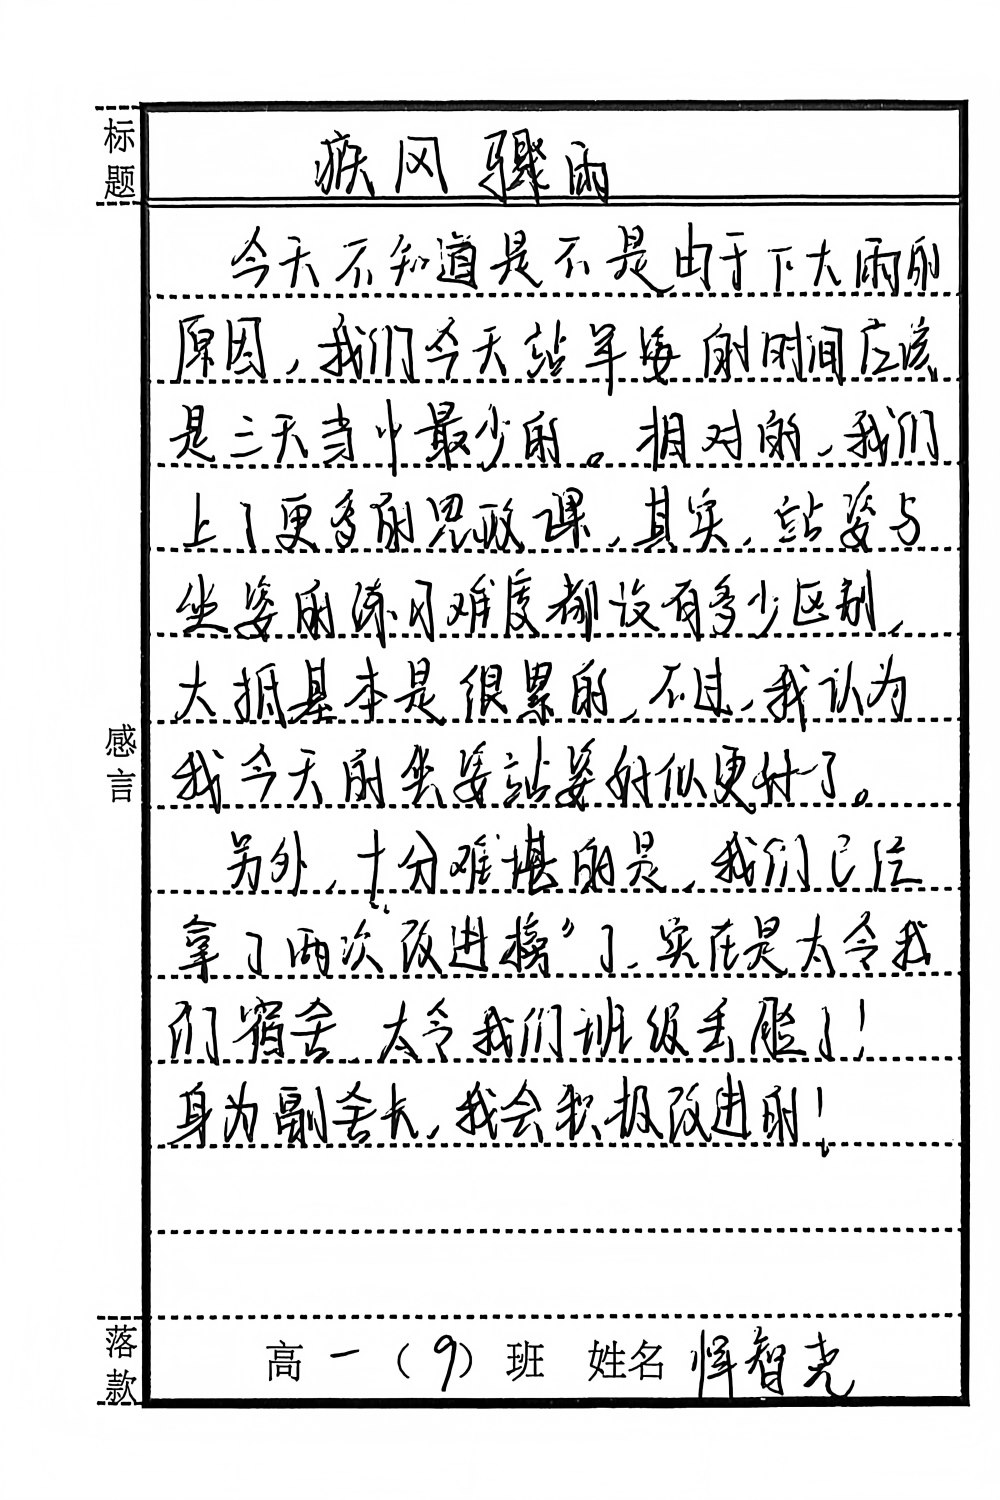 标题
疾风骤雨
今天不知道是不是由于下大雨的
原因,我们今天站军姿的时间应该
是三天当中最少的。相对的,我们
上了更多的思政课,其实,站姿与
坐姿的练习难度都没有多少区别,
大抵基本是很累的,不过,我认为
我今天的坐姿站姿好似更好了。
感言
另外,十分难堪的是,我们已经
拿了两次“改进榜”了,实在是太令我
们宿舍,太令我们班级丢脸了!
身为副舍长,我会积极改进的!
落款
高一(9)班 姓名 恽智尧